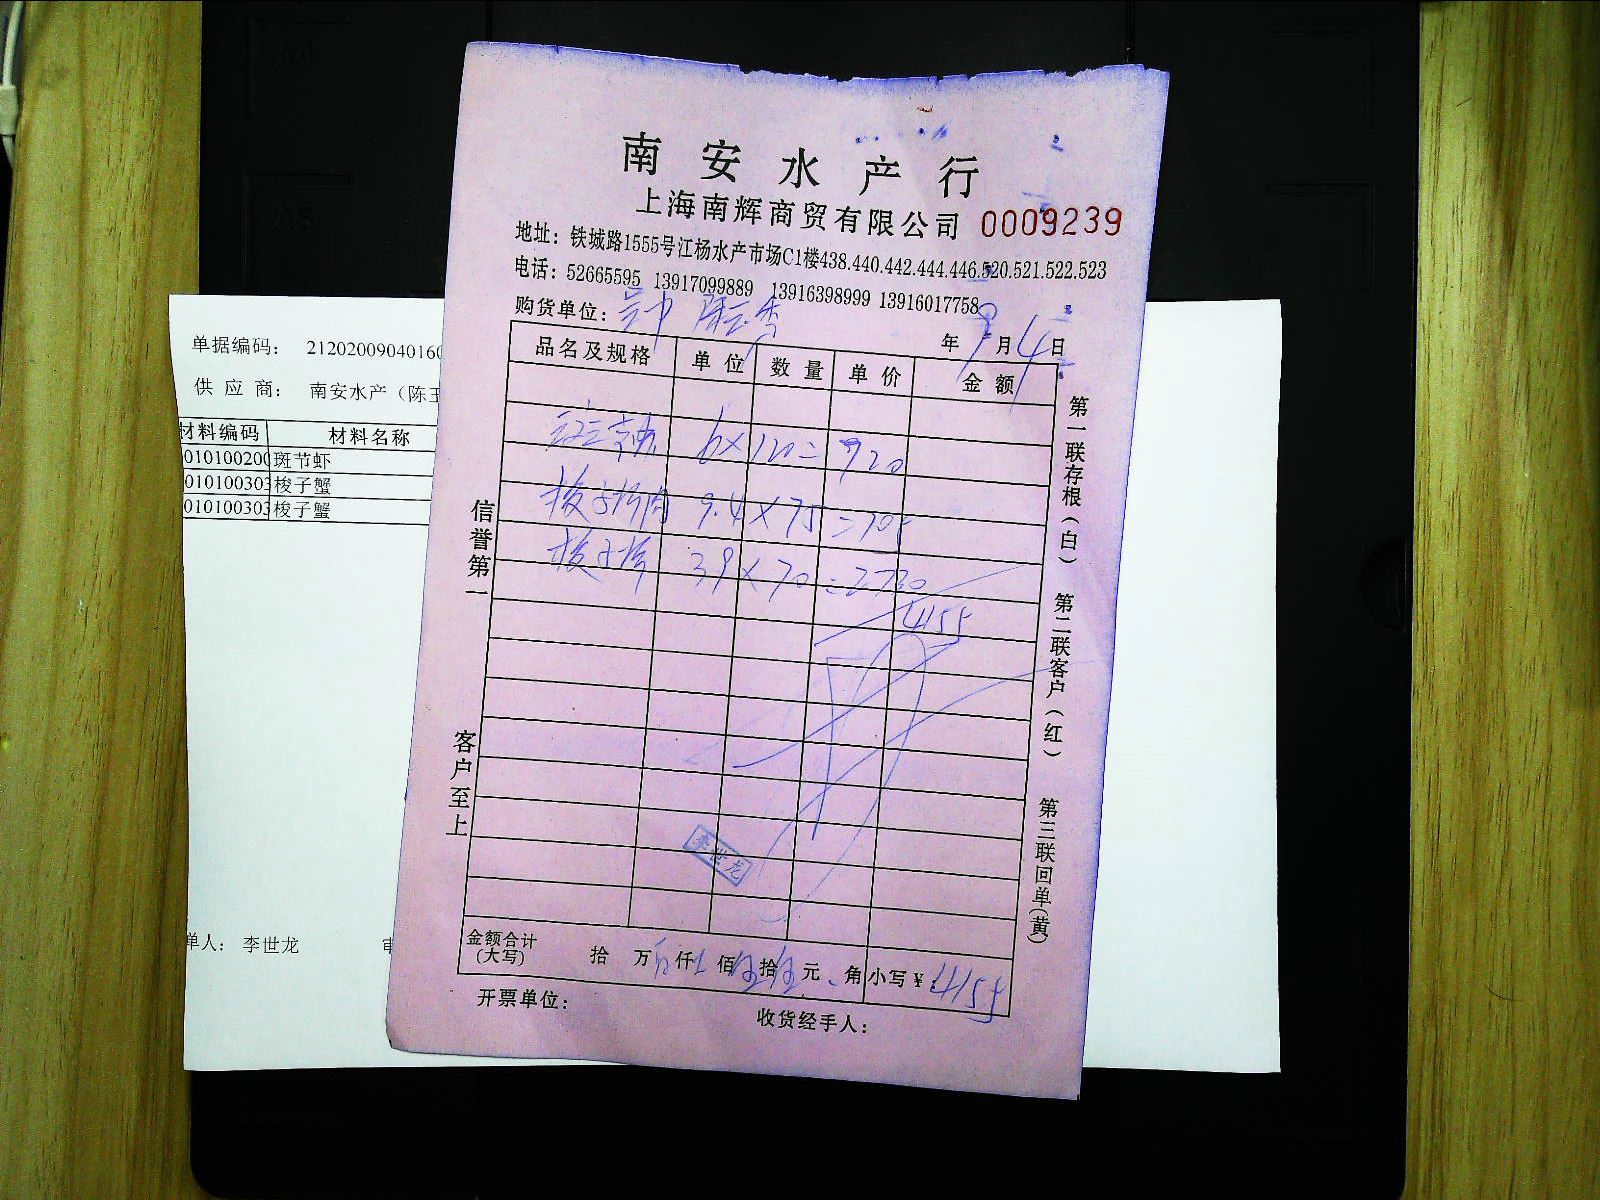 南安水产行
上海南辉商贸有限公司 0009239
地址：铁城路1555号江杨水产市场C1楼438.440.442.444.446.520.521.522.523
电话：52665595 13917099889 13916398999 13916017758
购货单位：
年 9月4日
品名及规格 单位 数量 单价 金额
6×120=720
梭子 9.4×75=705
梭子 39×70=2730
4155
李世龙
金额合计(大写) 拾 万 仟 佰伍拾伍元 角 小写¥4155
开票单位：
收货经手人：
信誉第一
客户至上
第一联存根(白)
第二联客户(红)
第三联回单(黄)
单据编码： 2120200904016
供应商： 南安水产（陈玉
材料编码 材料名称
010100200 斑节虾
010100303 梭子蟹
010100303 梭子蟹
单人： 李世龙